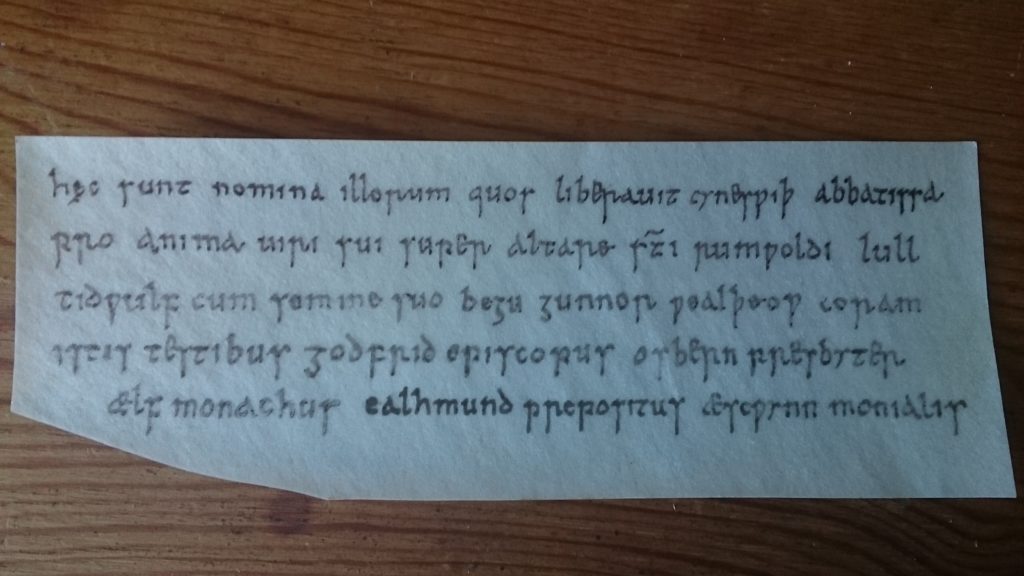 hęc sunt nomina illorum quos liberauit cyneswiþ abbatissa
pro anima uiri sui super altare sc̄i rumwoldi lull
tidwulf cum semine suo begu gunnor wealþeow coram
istis testibus godfrid episcopus osbern presbyter
ælf monachus ealhmund prepositus æscwynn monialis